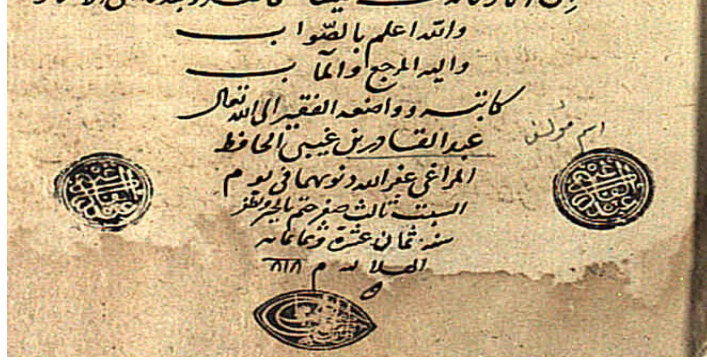 والله اعلم بالصواب
واليه المرجع والمآب
كاتبه وواضعه الفقير الى الله تعالى
عبد القادر بن غيبى الحافظ
المراغى غفر الله ذنوبهما فى يوم
السبت ثالث صفر ختم بالخير والظفر
سنه ثمان عشرة وثمانمائه
الهلاليه م ٨١٨
اسم مؤلف